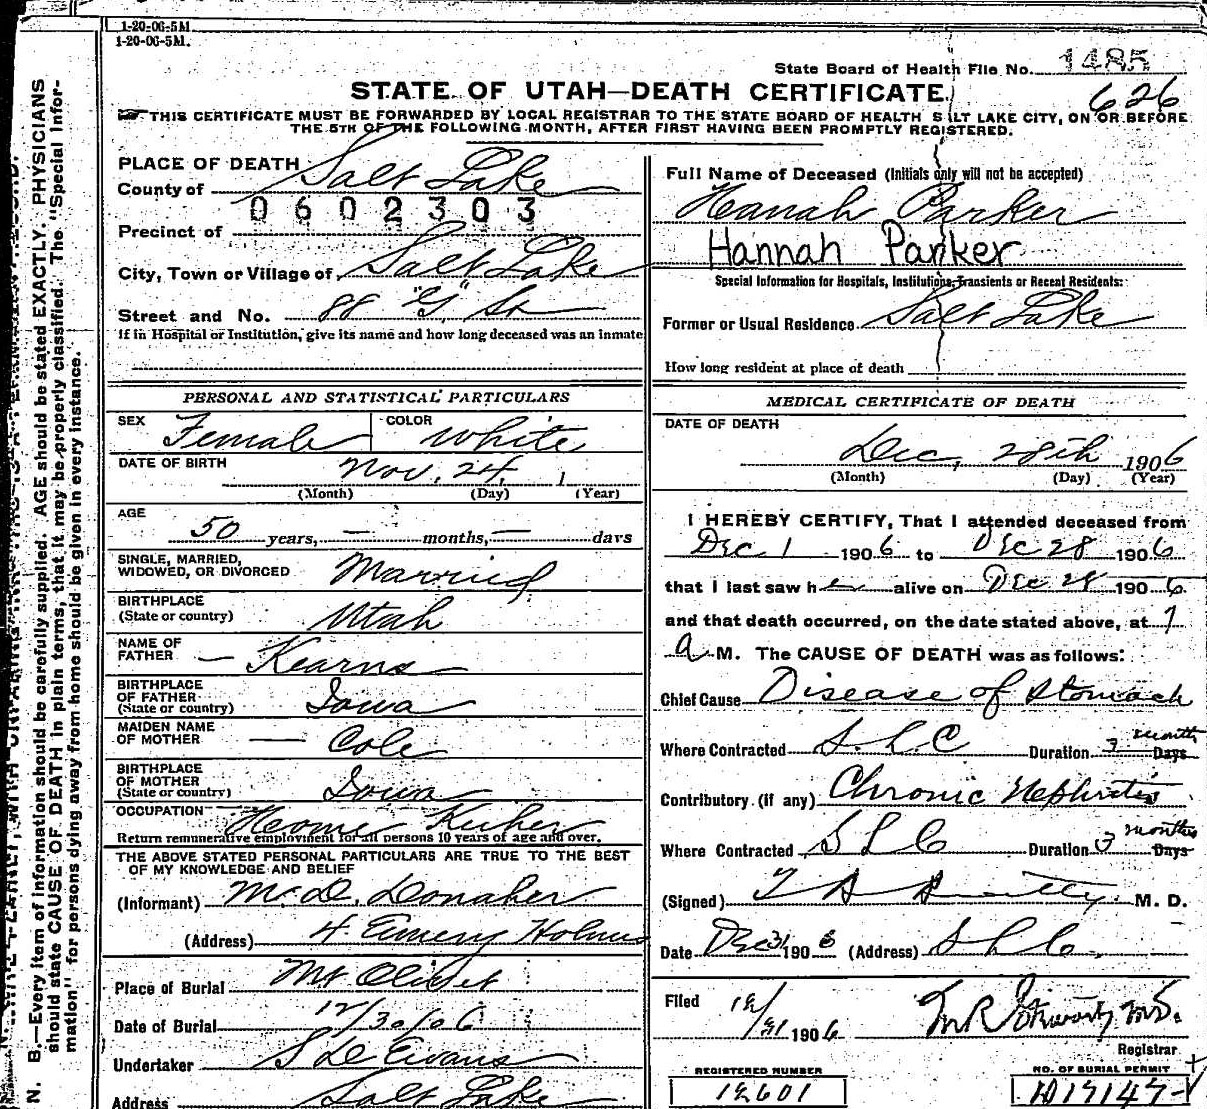 1-20-06-5M.
1-20-06-5M.
State Board of Health File No. 1485
STATE OF UTAH—DEATH CERTIFICATE 626
THIS CERTIFICATE MUST BE FORWARDED BY LOCAL REGISTRAR TO THE STATE BOARD OF HEALTH S LT LAKE CITY, ON OR BEFORE
THE 5TH OF THE FOLLOWING MONTH, AFTER FIRST HAVING BEEN PROMPTLY REGISTERED.
PLACE OF DEATH
County of Salt Lake
0602303
Precinct of
City, Town or Village of Salt Lake
Street and No. 88 "G" St
If in Hospital or Institution, give its name and how long deceased was an inmate
PERSONAL AND STATISTICAL PARTICULARS
SEX Female COLOR White
DATE OF BIRTH Nov. 24, 1
(Month) (Day) (Year)
AGE
50 years, — months, — days
SINGLE, MARRIED,
WIDOWED, OR DIVORCED Married
BIRTHPLACE
(State or country) Utah
NAME OF
FATHER — Kearns
BIRTHPLACE
OF FATHER
(State or country) Iowa
MAIDEN NAME
OF MOTHER — Cole
BIRTHPLACE
OF MOTHER
(State or country) Iowa
OCCUPATION House Keeper
Return remunerative employment for all persons 10 years of age and over.
THE ABOVE STATED PERSONAL PARTICULARS ARE TRUE TO THE BEST
OF MY KNOWLEDGE AND BELIEF
(Informant) Mc. D. Donaher
(Address) 4 Emery Holmes
Place of Burial Mt Olivet
Date of Burial 12/30/06
Undertaker S D Evans
Address Salt Lake
Full Name of Deceased (Initials only will not be accepted)
Hanah Parker
Hannah Parker
Special Information for Hospitals, Institutions, Transients or Recent Residents:
Former or Usual Residence Salt Lake
How long resident at place of death
MEDICAL CERTIFICATE OF DEATH
DATE OF DEATH
Dec, 28th 1906
(Month) (Day) (Year)
I HEREBY CERTIFY, That I attended deceased from
Dec 1 1906 to Dec 28 1906
that I last saw her alive on Dec 28 1906
and that death occurred, on the date stated above, at 7
A M. The CAUSE OF DEATH was as follows:
Chief Cause Disease of Stomach
Where Contracted S.L.C Duration 3 months Days
Contributory (if any) Chronic Nephritis
Where Contracted S L C Duration 3 months Days
(Signed) M. D.
Date Dec 31 1906 (Address) S L C.
Filed 12/31 1906 M.D.
Registrar
REGISTERED NUMBER
12601
NO. OF BURIAL PERMIT
N. B.—Every item of information should be carefully supplied. AGE should be stated EXACTLY. PHYSICIANS
should state CAUSE OF DEATH in plain terms, that it may be properly classified. The "Special Infor-
mation" for persons dying away from home should be given in every instance.